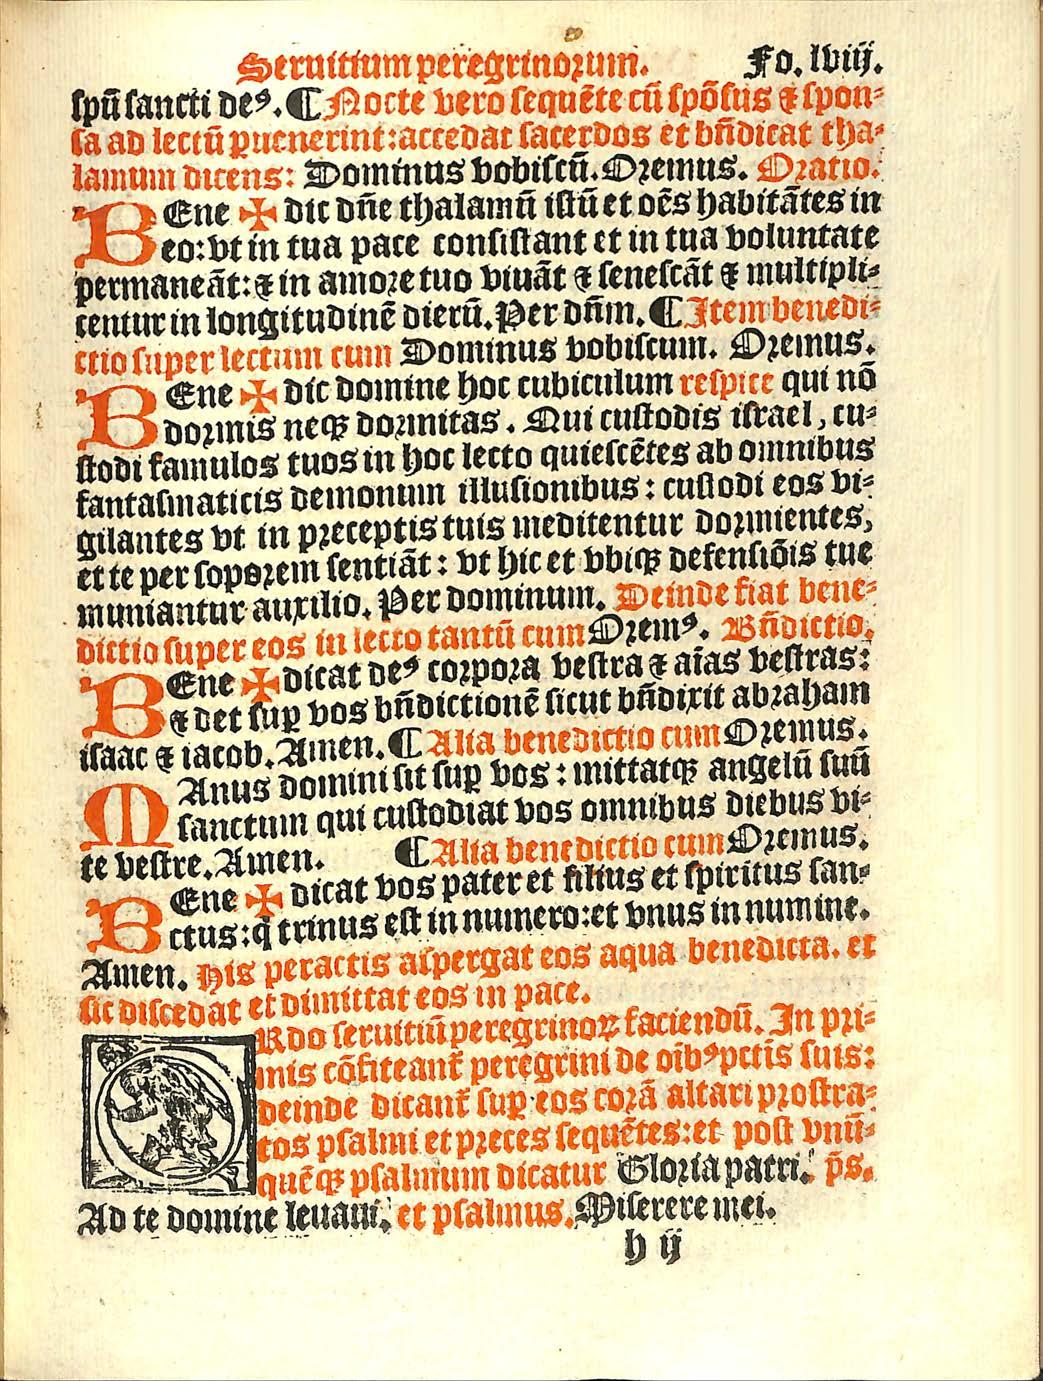 Seruitium peregrinoꝛum. Fo. lviij.
spũ sancti deꝰ. ¶ Nocte vero sequẽte cũ spõsus ⁊ spon⸗
sa ad lectũ ꝑuenerint: accedat sacerdos et bñdicat tha⸗
lamum dicens: Dominus vobiscũ. Oꝛemus. Oꝛatio.
BEne ✠ dic dñe thalamũ istũ et oẽs habitãtes in
eo: vt in tua pace consistant et in tua voluntate
permaneãt: ⁊ in amoꝛe tuo viuãt ⁊ senescãt ⁊ multipli⸗
centur in longitudinẽ dierũ. Per dñm. ¶ Item benedi⸗
ctio super lectum cum Dominus vobiscum. Oꝛemus.
BEne ✠ dic domine hoc cubiculum respice qui nõ
doꝛmis neqꝫ doꝛmitas. Qui custodis israel, cu⸗
stodi famulos tuos in hoc lecto quiescẽtes ab omnibus
fantasmaticis demonum illusionibus: custodi eos vi⸗
gilantes vt in pꝛeceptis tuis meditentur doꝛmientes,
et te per sopoꝛem sentiãt: vt hic et vbiqꝫ defensiõis tue
muniantur auxilio. Per dominum. Deinde fiat bene⸗
dictio super eos in lecto tantũ cum Oꝛemꝰ. Bñdictio.
BEne ✠ dicat deꝰ coꝛpoꝛa vestra ⁊ aĩas vestras:
⁊ det suꝑ vos bñdictionẽ sicut bñdixit abꝛaham
isaac ⁊ iacob. Amen. ¶ Alia benedictio cum Oꝛemus.
MAnus domini sit suꝑ vos: mittatqꝫ angelũ suũ
sanctum qui custodiat vos omnibus diebus vi⸗
te vestre. Amen. ¶ Alia benedictio cum Oꝛemus.
BEne ✠ dicat vos pater et filius et spiritus san⸗
ctus: q̃ trinus est in numero: et vnus in numine.
Amen. His peractis aspergat eos aqua benedicta. et
sic discedat et dimittat eos in pace.
ORdo seruitiũ peregrinoꝝ faciendũ. In pꝛi⸗
mis cõfiteant᷑ peregrini de oĩbꝰ pctĩs suis:
deinde dicant᷑ suꝑ eos coꝛã altari pꝛostra⸗
tos psalmi et pꝛeces sequẽtes: et post vnũ⸗
quẽqꝫ psalmum dicatur Gloꝛia patri. p̃s.
Ad te domine leuaui. et psalmus. Miserere mei.
h ij